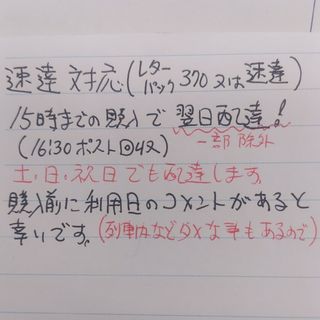 速達対応(レターパック370又は速達)
15時までの購入で翌日配達!
(16:30ポスト回収) 一部除外
土・日・祝日でも配達します。
購入前に利用日のコメントがあると
幸いです。(列車内などダメな事もあるので)